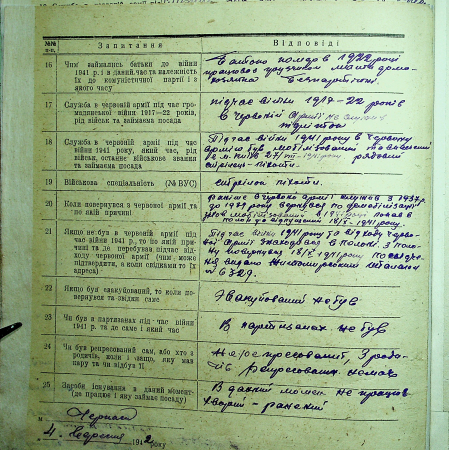 №№ п.п.
Запитання
Відповіді
16
Чим займались батьки до війни
1941 р. і в даний час та належність
їх до комуністичної партії і з
якого часу
Батько помер в 1922 році
працював грузчиком мати домо-
безпартійні
17
Служба в червоній армії під час гро-
мадянської війни 1917—22 років,
рід військ та займаєма посада
під час війни 1917-22 років
в Червоній Армії не служив
підлітком
18
Служба в червоній армії під час
війни 1941 року, який час, рід
військ, останнє військове звання
та займаєма посада
Під час війни 1941 року в Червону
армію був мобілізований
м. Київ 27/VII-1941 року рядовий
стрілець-піхоти.
19
Військова спеціальність (№ ВУС)
стрілок піхоти.
20
Коли повернувся з червоної армії та
по якій причині
в 1937р.
до 1939 року вернувся по демобілізації
в 1941 році попав в
полон 18/X-1941 року.
21
Якщо не був в червоній армії під
час війни 1941 р., то по якій причи-
ні та де перебував під час від-
ходу червоної армії (чим може
підтвердити, а коли свідками то їх
адреса).
Під час війни 1941 року та відходу Черво-
ної Армії знаходився в полоні. З поло-
ну повернувся 18/X 1941 року
видано Житомирським
№ 6329.
22
Якщо був евакуйований, то коли по-
вернувся та звідки саме
Эвакуйований не був
23
Чи був в партизанах під час війни
1941 р. та де саме і який час
В партизанах не був
24
Чи був репресований сам, або хто з
родичів, коли і защо, яку мав
кару та чи відбув її
Не репресований, З родичів
репресованих немає
25
Засоби існування в даний момент
(де працює і яку займає посаду)
В даний момент не працює
хворий - ранений
м.
4. вересня 1942 року